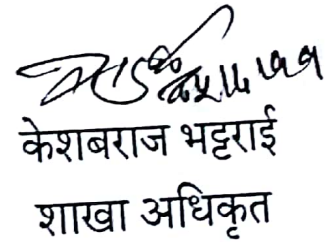 केशबराज भट्टराई
शाखा अधिकृत